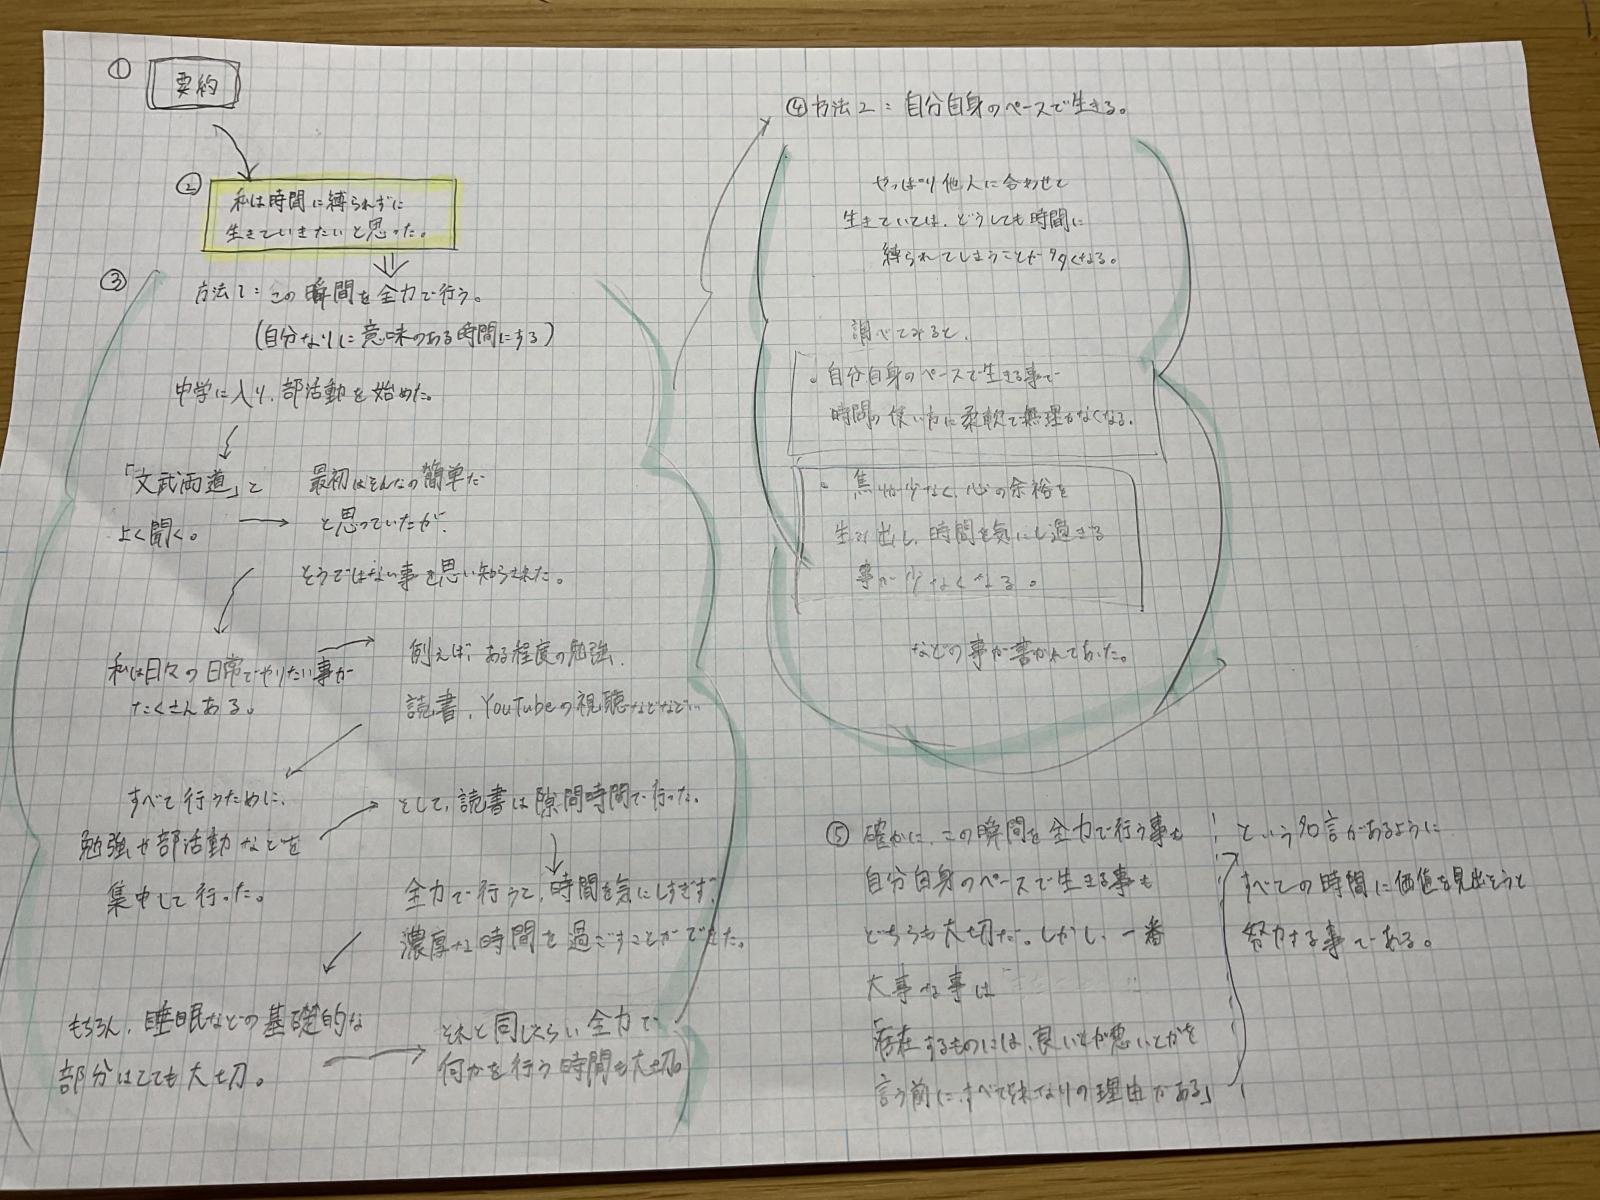 ①
要約
②
私は時間に縛られずに
生きていきたいと思った。
③
方法1:この瞬間を全力で行う。
(自分なりに意味のある時間にする)
中学に入り、部活動を始めた。
「文武両道」と
よく聞く。
最初はそんなの簡単だ
と思っていたが、
そうではない事を思い知らされた。
私は日々の日常でやりたい事が
たくさんある。
例えば、ある程度の勉強、
読書、YouTubeの視聴などなど…
すべて行うために、
勉強や部活動などを
集中して行った。
そして、読書は隙間時間で行った。
全力で行うと、時間を気にしすぎず、
濃厚な時間を過ごすことができた。
もちろん、睡眠などの基礎的な
部分はとても大切。
それと同じくらい全力で
何かを行う時間も大切。
④方法2:自分自身のペースで生きる。
やっぱり他人に合わせて
生きていては、どうしても時間に
縛られてしまうことが多くなる。
調べてみると、
・自分自身のペースで生きる事で
時間の使い方に柔軟で無理がなくなる。
・焦りが少なく、心の余裕を
生み出し、時間を気にし過ぎる
事が少なくなる。
などの事が書かれてあった。
⑤ 確かに、この瞬間を全力で行う事も
自分自身のペースで生きる事も
どちらも大切だ。しかし、一番
大事な事は
「存在するものには、良いとか悪いとかを
言う前に、すべてそれなりの理由がある」
という名言があるように
すべての時間に価値を見出そうと
努力する事である。